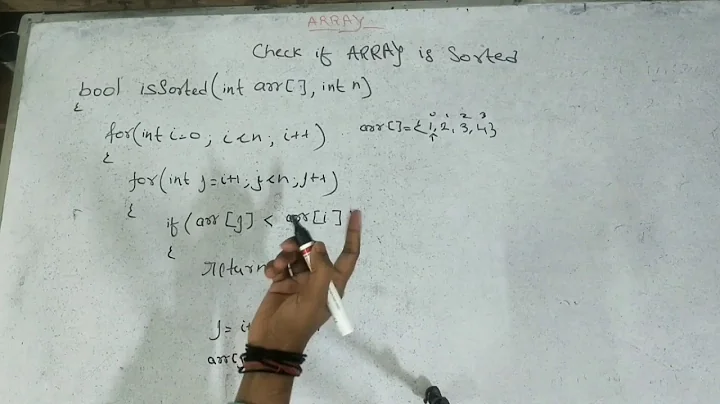 ARRAY
Check if ARRAY is Sorted
bool isSorted(int arr[], int n)
{
for(int i=0; i<n; i++)
0 1 2 3
arr[]={1,2,3,4}
↑
{
for(int j=i+1; j<n; j++)
{
if (arr[j] < arr[i]
{
return
j= i+
arr[